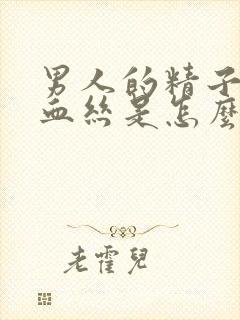 男人的精子
血丝是怎麽
老霍兒